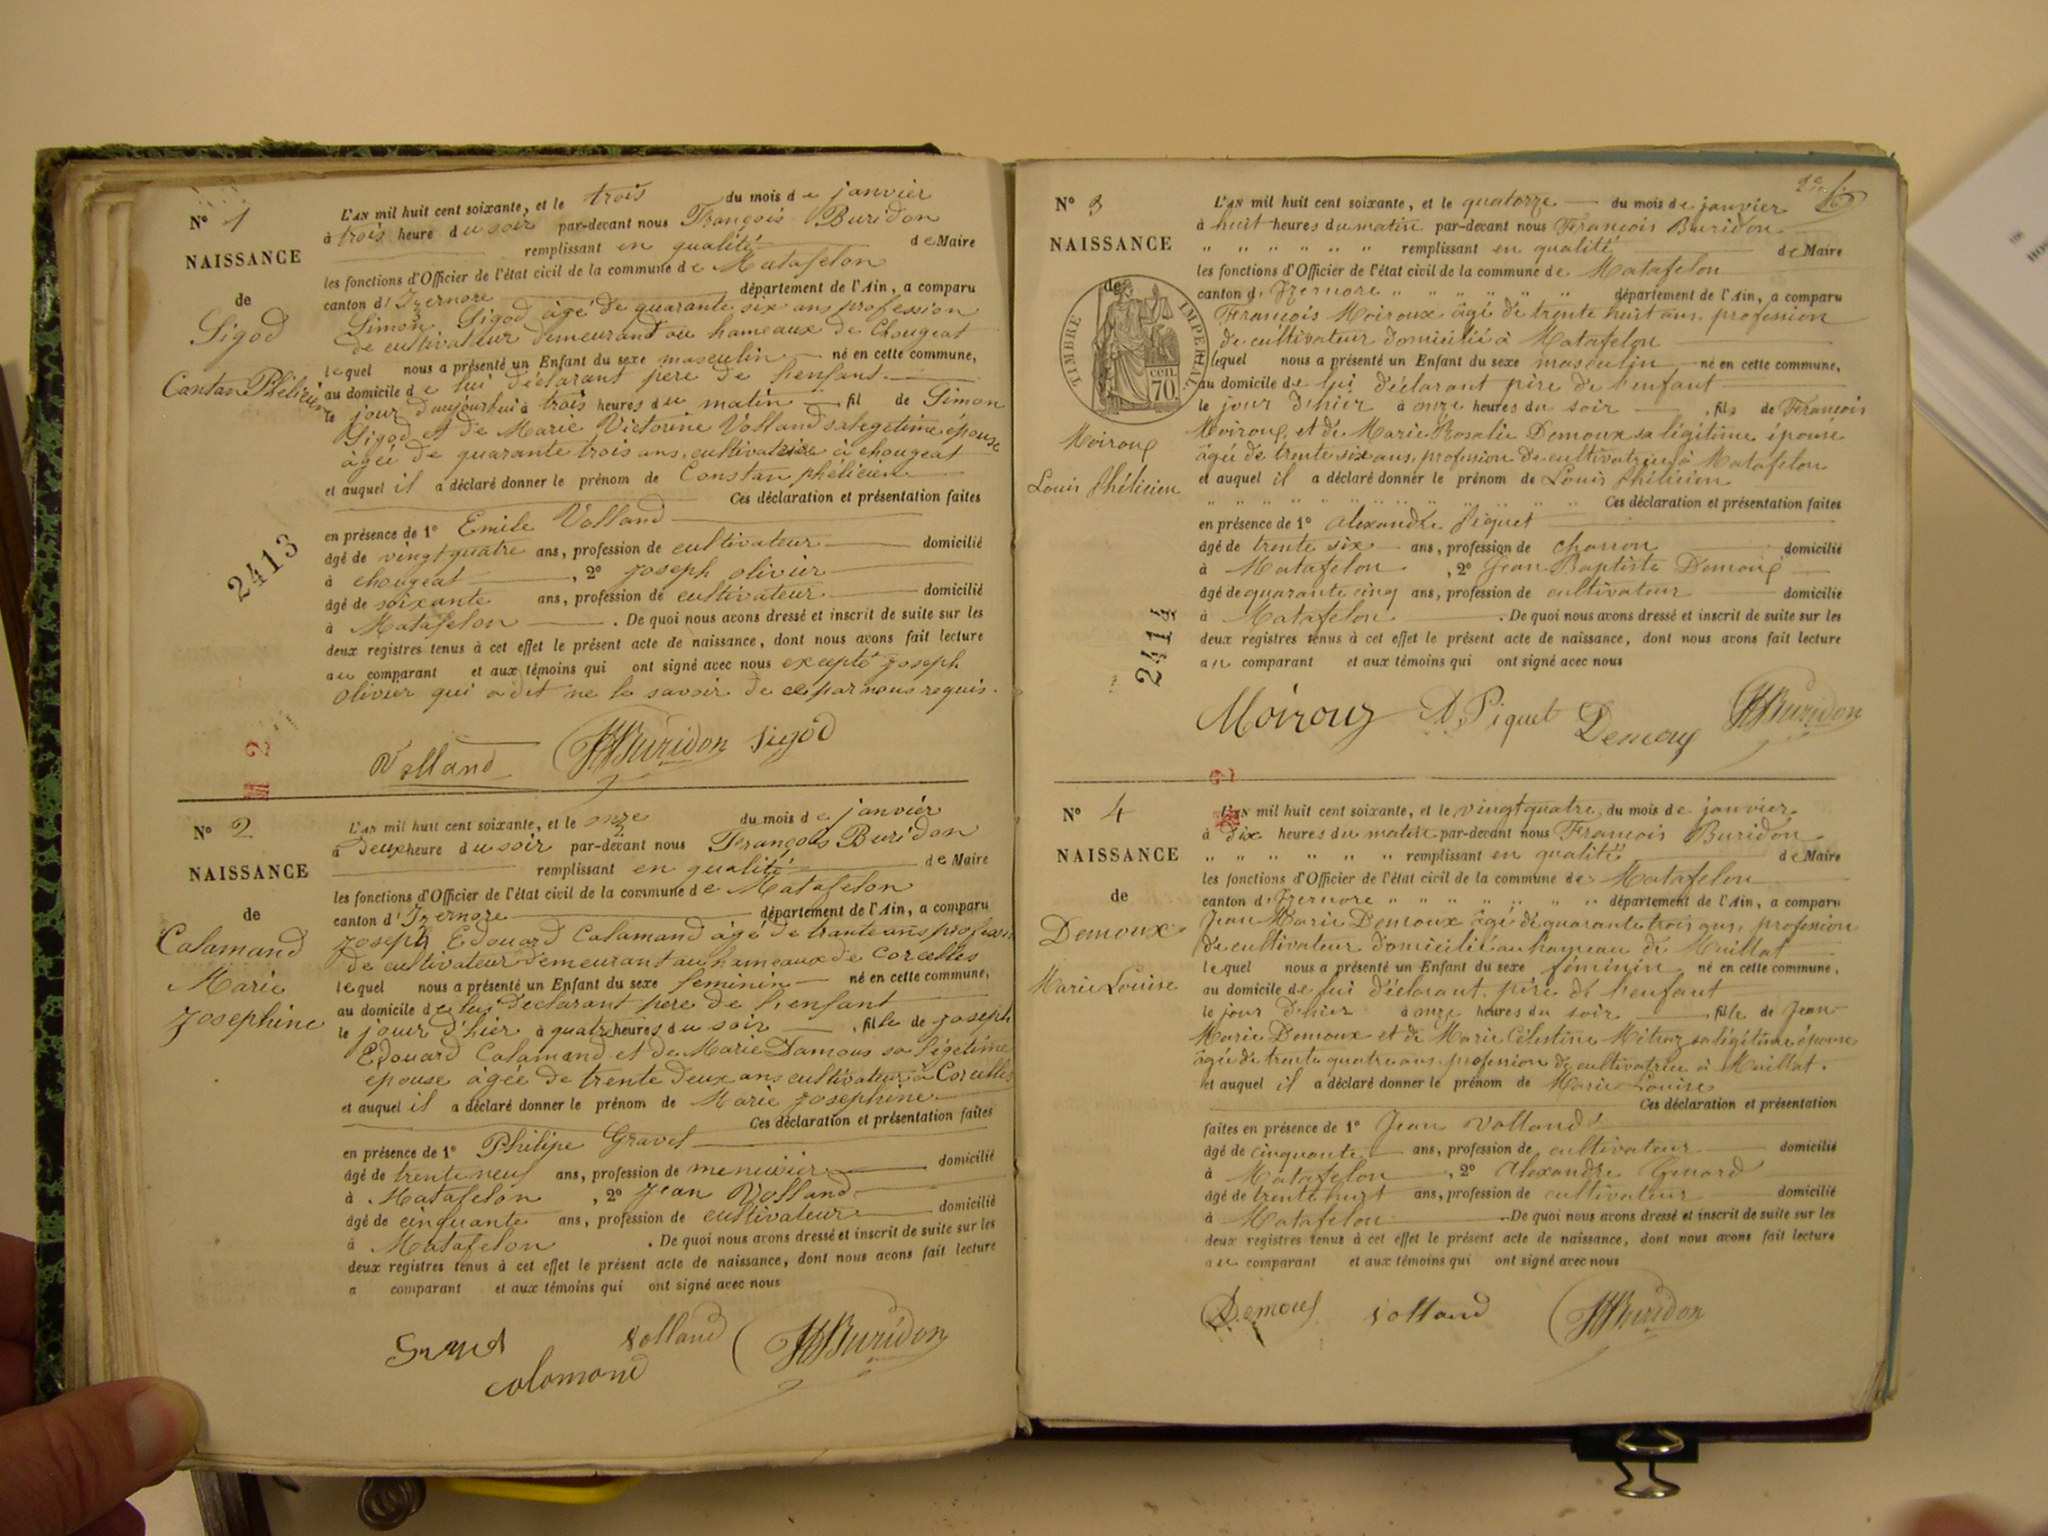 N° 1
NAISSANCE
de
Sigod
Constan Phélicien
L'AN mil huit cent soixante, et le trois du mois de janvier
à trois heure du soir par-devant nous François Buridon
remplissant en qualité de Maire
les fonctions d'Officier de l'état civil de la commune de Matafelon
canton d'Izernore département de l'Ain, a comparu
Simon Sigod âgé de quarante six ans profession
de cultivateur demeurant au hameaux de Chougeat
lequel nous a présenté un Enfant du sexe masculin né en cette commune,
au domicile de lui déclarant père de l'enfant
le jour d'aujourd'hui à trois heures du matin fil de Simon
Sigod et de Marie Victorine Volland sa legetime épouse
âgée de quarante trois ans, cultivatrice à chougeat
et auquel il a déclaré donner le prénom de Constan phélicien
Ces déclaration et présentation faites
en présence de 1° Emile Volland
âgé de vingt quatre ans, profession de cultivateur domicilié
à chougeat, 2° Joseph olivier
âgé de soixante ans, profession de cultivateur domicilié
à Matafelon. De quoi nous avons dressé et inscrit de suite sur les
deux registres tenus à cet effet le présent acte de naissance, dont nous avons fait lecture
au comparant et aux témoins qui ont signé avec nous excepté Joseph
olivier qui a dit ne le savoir de ce par nous requis.
2413
M 2
Volland Buridon Sigod
N° 2
NAISSANCE
de
Calamand
Marie
Josephine
L'AN mil huit cent soixante, et le onze du mois de janvier
à deux heure du soir par-devant nous François Buridon
remplissant en qualité de Maire
les fonctions d'Officier de l'état civil de la commune de Matafelon
canton d'Izernore département de l'Ain, a comparu
Joseph Edouard Calamand âgé de trante ans profession
de cultivateur demeurant au hameaux de Corcelles
lequel nous a présenté un Enfant du sexe feminin né en cette commune,
au domicile de lui déclarant père de l'enfant
le jour d'hier à quatre heures du soir, fille de Joseph
Edouard Calamand et de Marie Damous sa légetime
épouse âgée de trente deux ans cultivateur à Corcelles
et auquel il a déclaré donner le prénom de Marie Josephine
Ces déclaration et présentation faites
en présence de 1° Philipe Gravet
âgé de trente neuf ans, profession de menuisier domicilié
à Matafelon, 2° Jean Volland
âgé de cinquante ans, profession de cultivateur domicilié
à Matafelon. De quoi nous avons dressé et inscrit de suite sur les
deux registres tenus à cet effet le présent acte de naissance, dont nous avons fait lecture
a comparant et aux témoins qui ont signé avec nous
Volland Buridon
Colomond
N° 3
NAISSANCE
de
TIMBRE IMPERIAL
CEN. 70.
Moiroux
Louis Phélicien
L'AN mil huit cent soixante, et le quatorze du mois de janvier
à huit heures du matin par-devant nous François Buridon
" " " " " " remplissant en qualité de Maire
les fonctions d'Officier de l'état civil de la commune de Matafelon
canton d'Izernore " " " " " " département de l'Ain, a comparu
François Moiroux âgé de trente huit ans, profession
de cultivateur domicilié à Matafelon
lequel nous a présenté un Enfant du sexe masculin né en cette commune,
au domicile de lui déclarant père de l'enfant
le jour d'hier à onze heures du soir, fils de François
Moiroux, et de Marie Rosalie Demoux sa légitime épouse
âgée de trente six ans, profession de cultivatrice à Matafelon
et auquel il a déclaré donner le prénom de Louis Phélicien
Ces déclaration et présentation faites
en présence de 1° Alexandre Piquet
âgé de trente six ans, profession de charron domicilié
à Matafelon, 2° Jean Baptiste Demoux
âgé de quarante cinq ans, profession de cultivateur domicilié
à Matafelon. De quoi nous avons dressé et inscrit de suite sur les
deux registres tenus à cet effet le présent acte de naissance, dont nous avons fait lecture
au comparant et aux témoins qui ont signé avec nous
2414
Moiroux A, Piquet Demoux Buridon
N° 4
NAISSANCE
de
Demoux
Marie Louise
L'AN mil huit cent soixante, et le vingt quatre du mois de janvier
à dix heures du matin par-devant nous François Buridon
" " " " " " remplissant en qualité de Maire
les fonctions d'Officier de l'état civil de la commune de Matafelon
canton d'Izernore " " " " " " " département de l'Ain, a comparu
Jean Marie Demoux âgé de quarante trois ans, profession
de cultivateur domicilié au hameau de Maillat
lequel nous a présenté un Enfant du sexe féminin né en cette commune,
au domicile de lui déclarant, père de l'enfant
le jour d'hier à onze heures du soir, fille de Jean
Marie Demoux et de Marie Célestine Métraz sa légitime épouse
âgée de trente quatre ans profession de cultivatrice à Maillat.
et auquel il a déclaré donner le prénom de Marie Louise
Ces déclaration et présentation
faites en présence de 1° Jean Volland
âgé de cinquante ans, profession de cultivateur domicilié
à Matafelon, 2° Alexandre
âgé de trente huit ans, profession de cultivateur domicilié
à Matafelon. De quoi nous avons dressé et inscrit de suite sur les
deux registres tenus à cet effet le présent acte de naissance, dont nous avons fait lecture
au comparant et aux témoins qui ont signé avec nous
Demoux Volland Buridon